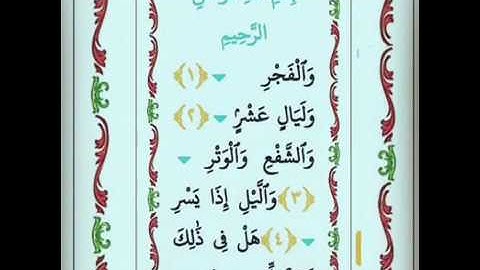 الرَّحِيمِ
وَٱلْفَجْرِ ﴿١﴾
وَلَيَالٍ عَشْرٍ ﴿٢﴾
وَٱلشَّفْعِ وَٱلْوَتْرِ
﴿٣﴾ وَٱلَّيْلِ إِذَا يَسْرِ
﴿٤﴾ هَلْ فِى ذَٰلِكَ